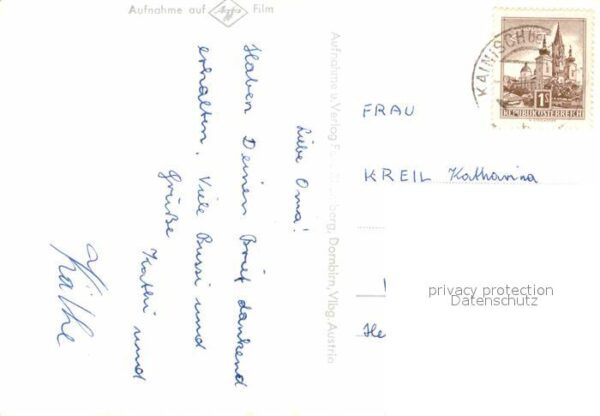 Aufnahme auf Agfa Film
Liebe Oma!
Haben Deinen Brief dankend
erhalten. Viele Bussi und
Grüße
Kathi und
Käthe
Aufnahme u. Verlag
berg, Dornbirn, Vlbg. Austria
KAINISCH
1S
REPUBLIK ÖSTERREICH
FRAU
KREIL Katharina
He
privacy protection
Datenschutz